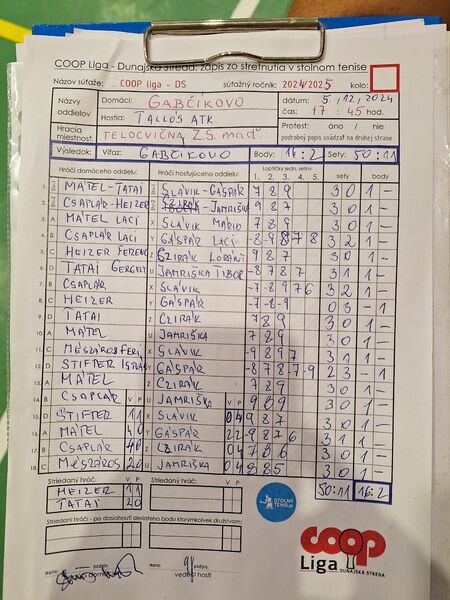 COOP Liga - Dunajská Streda: zápis zo stretnutia v stolnom tenise
Názov súťaže: COOP liga - DS súťažný ročník: 2024/2025 kolo:
Názov oddielov Domáci: GABČIKOVO dátum: 5.12.2024
Hostia: TALLÓS ATK čas: 17:45 hod.
Hracia miestnosť: TELOCVIČŇA Z.Š. maď Protest: áno / nie
podrobný popis uvádzať na druhej strane
Výsledok: Víťaz: GABČIKOVO Body: 16:2 Sety: 50:11
Hráči domáceho oddielu: Hráči hosťujúceho oddielu: Loptičky jedn. setov sety body
1. 2. 3. 4. 5.
1. MATEL-TATAI SLÁVIK-GÁSPÁR 7 8 9 3 0 1 –
2. CSAPLÁR-HEIZER CZIRÁK -JAMRIŠKA 9 8 7 3 0 1 –
3. A MATEL LACI X SLÁVIK MARIO 7 8 9 3 0 1 –
4. B CSAPLÁR LACI Y GÁSPÁR LACI -8 -9 8 7 8 3 2 1 –
5. C HEIZER FERENC Z CZIRÁK LORÁNT 9 8 7 3 0 1 –
6. D TATAI GERGELY U JAMRIŠKA TIBOR -8 7 8 7 3 1 1 –
7. B CSAPLÁR X SLÁVIK 7 -8 9 7 6 3 2 1 –
8. C HEIZER Y GÁSPÁR -7 -8 -9 0 3 – 1
9. D TATAI Z CZIRÁK 7 8 9 3 0 1 –
10. A MATEL U JAMRIŠKA 7 8 9 3 0 1 –
11. C MÉSZÁROS FERI X SLÁVIK -9 8 9 7 3 1 1 –
12. D STIFTER Y GÁSPÁR -8 7 8 7 -9 2 3 – 1
13. A MATEL Z CZIRÁK 7 8 9 3 0 1 –
14. B CSAPLÁR V P U JAMRIŠKA V P 9 8 9 3 0 1 –
15. D STIFTER 1 1 X SLÁVIK 0 4 9 8 7 3 0 1 –
16. A MATEL 4 0 Y GÁSPÁR 2 2 -9 8 7 6 3 1 1
17. B CSAPLÁR 4 0 Z CZIRÁK 0 4 7 8 6 3 0 1 –
18. C MÉSZÁROS 2 0 U JAMRIŠKA 0 4 8 8 5 3 0 1 –
Striedaný hráč: V P Striedaný hráč: V P 50:11 16:2
HEIZER 1 1
TATAI 2 0
STOLNÝ TENIS.sk
Striedaní hráči - po dosiahnutí desiateho bodu ktorýmkoľvek družstvom:
coop
Liga DUNAJSKÁ STREDA
meno: podpis: meno: podpis:
vedúci hostí